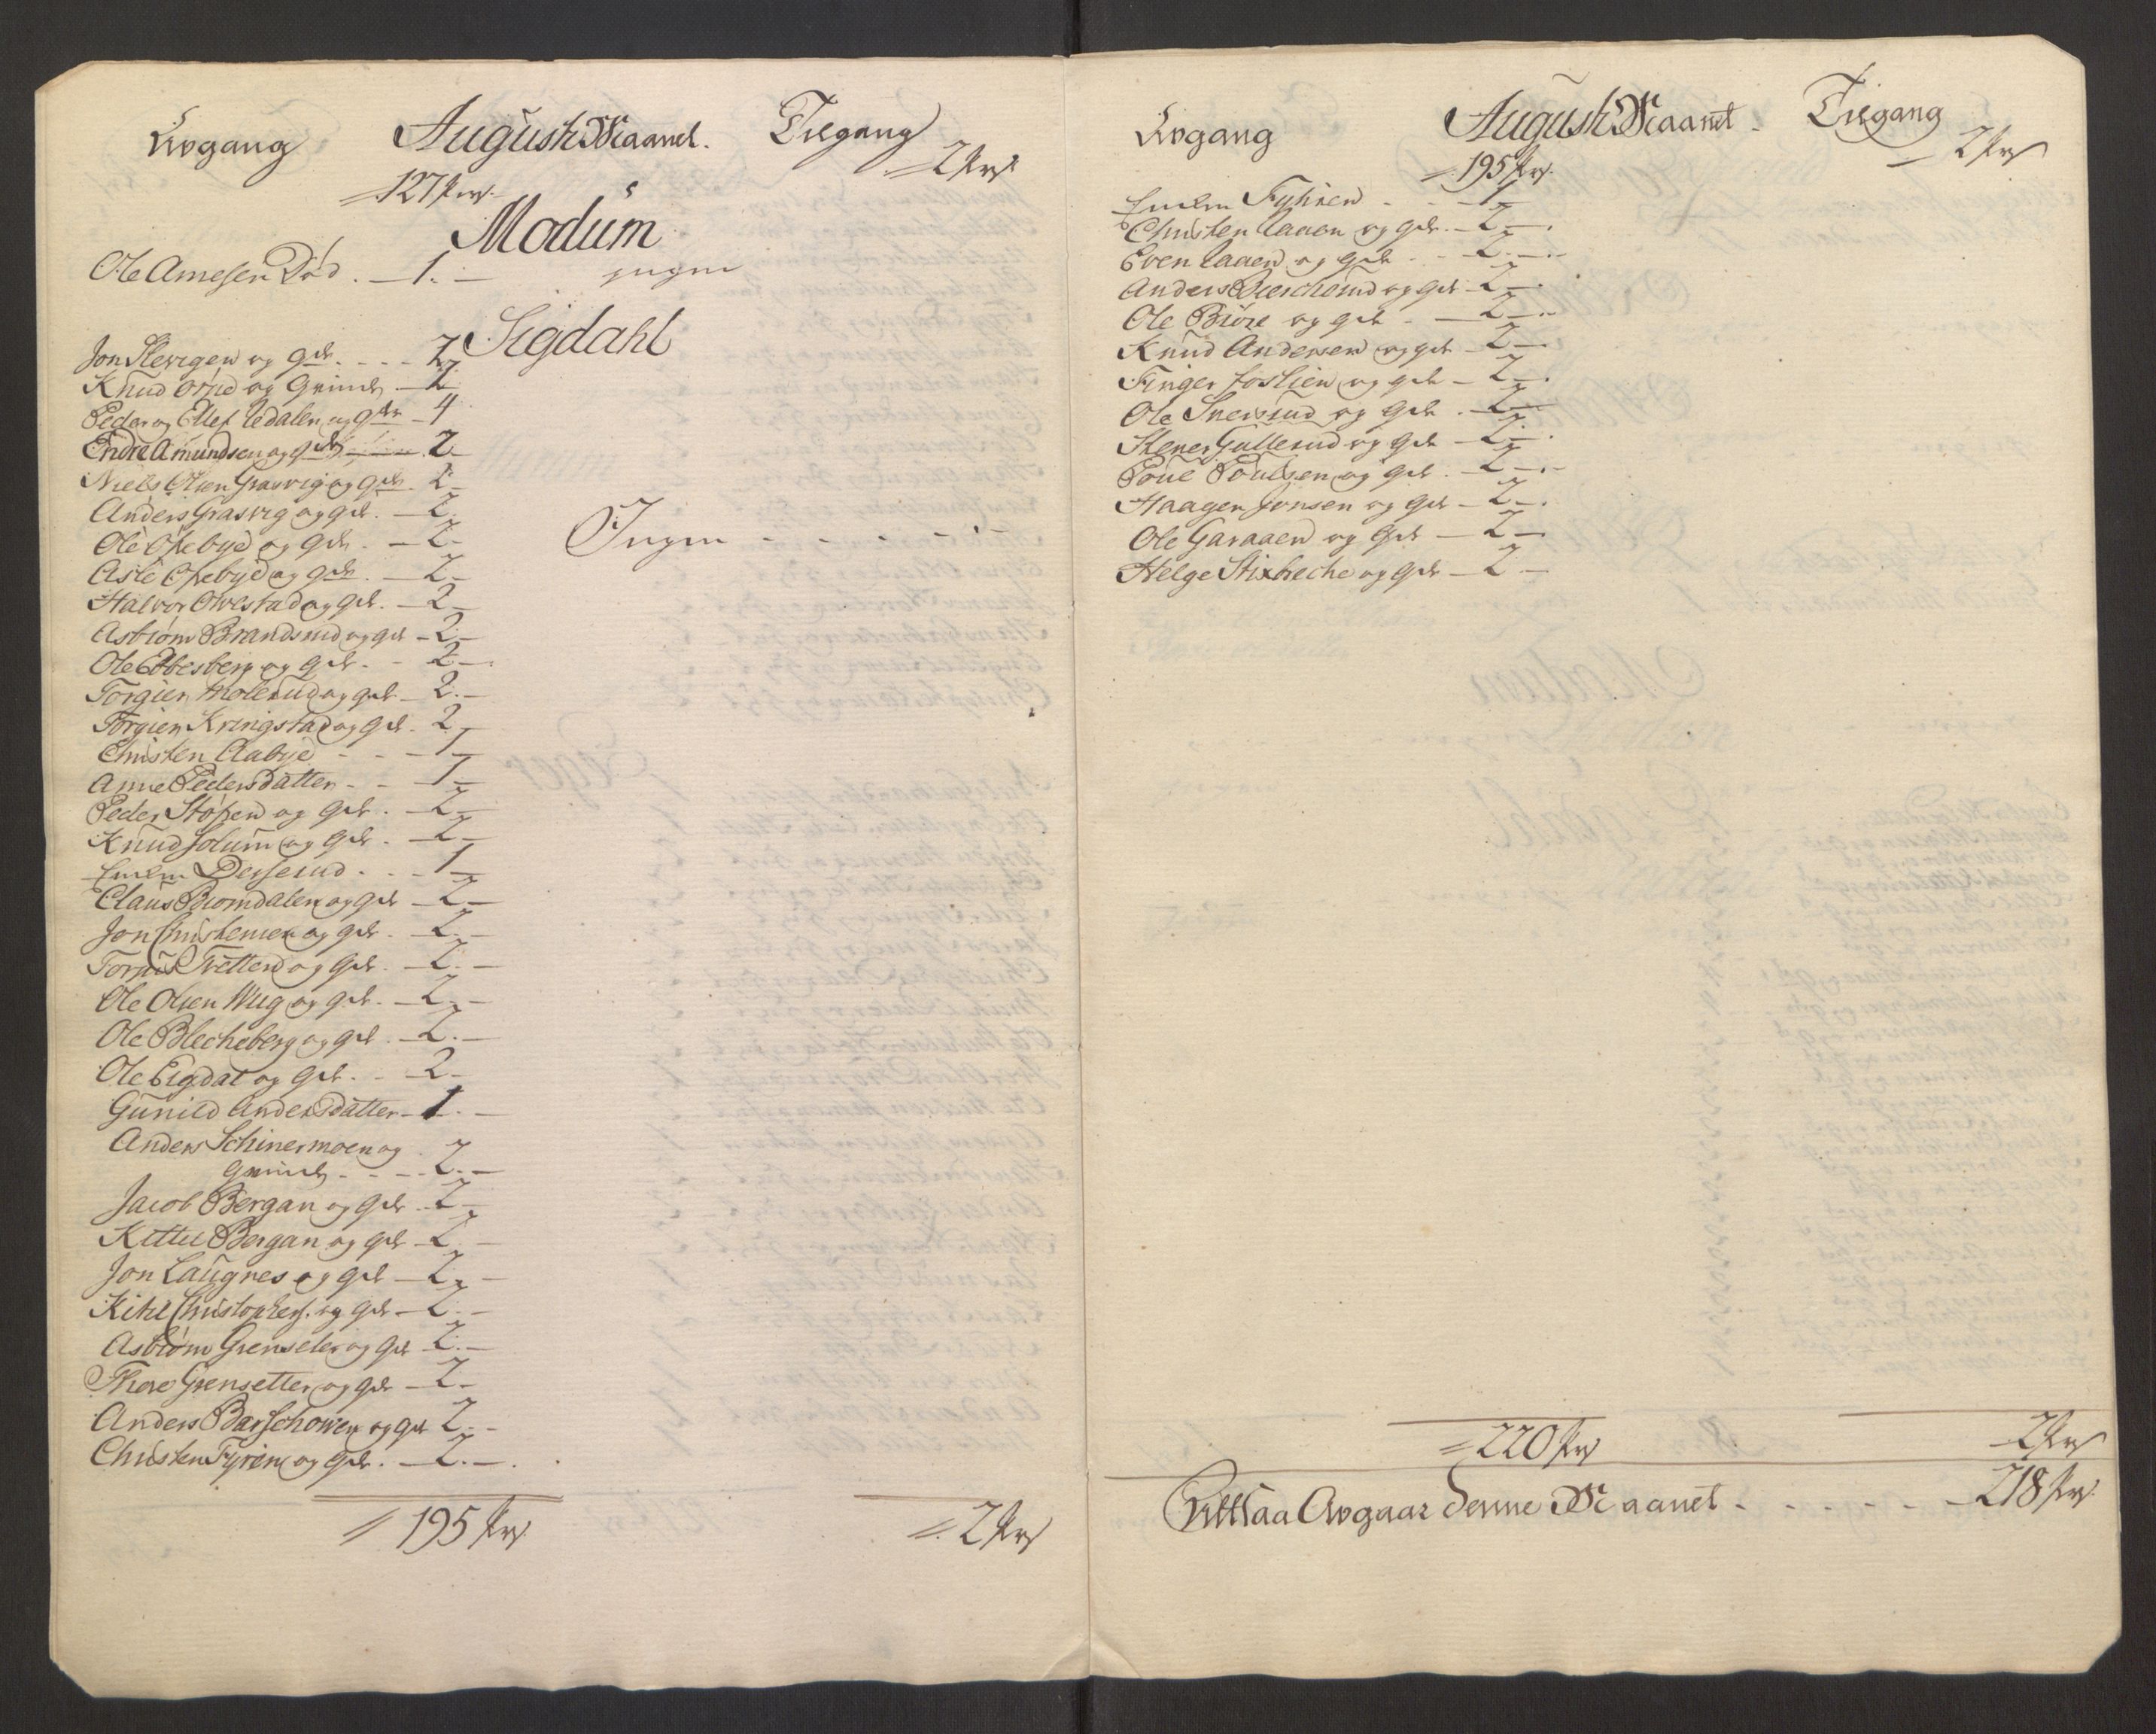 Avgang August Maanet. Tilgang
127 Prs. 2 Prs
Modum
Ole Arnesen Død . 1. ingen
Sigdahl
Jon Slevigen og qde. - - - 2
Knud og Qvinde 2
Peder og Ellef Vedalen og qdr - 4
Endre Amundsen og qde 2.
Niels Olsen Grasvig og qde. 2
Anders Grasvig og qde. 2
Ole Ofebye og qde. 2. Ingen - - - - -
Asle Ofebye og qde. 2
Halvor Olvestad og qde. 2
Asbiørn Brandsrud og qde 2
Ole Ebbesberg og qde. - 2
Torgier Molerud og qde 2.
Torgier Kringstad og qde. 2
Christen Aabye - - - 1
Anne Pedersdatter - - 1
Peder Støfen og qde. 2
Knud Solum og qde. 2
Enken Desserud . . . 1
Claus Bromdalen og qde 2
Jon Christensen og qde. 2
Tretterd og qde. 2.
Ole Olsen Wiig og qde. 2
Ole Blecheberg og qde. 2.
Ole Eigdal og qde. - 2
Gunild Andersdatter 1.
Anders Schinermoen og
Qvinde - - - 2.
Jacob Bergan og qde 2
Kittil Bergan og qde 2
Jon Laugnes og qde 2
Kitil Christophers. og qde 2.
Asbiørn Grenseter og qde 2.
Thore Grensetter og qde 2
Anders Barschowen og qde 2.
Christen Fyren og qde. 2.
195 Prs 2 Prs
Avgang August Maanet Tilgang
195 Prs. 2 Prs
Enken Fyhren - - 1
Christen Aaaen og qde. 2
Even Aaaen og qde - 2.
Anders og qde 2
Ole Biøre og qde - 2
Knud Andersen og qde 2
Finger Foslien og qde 2
Ole Snersrud og qde. 2
Stener Gullerud og qde 2
Poul Poulsen og qde. 2
Haagen Jonsen og qde 2
Ole Garaaen og qde 2
Helge Stixbreche og qde 2
220 Prs 2 Prs
Altsaa Avgaar denne Maanet - - - - - 218 Prs.